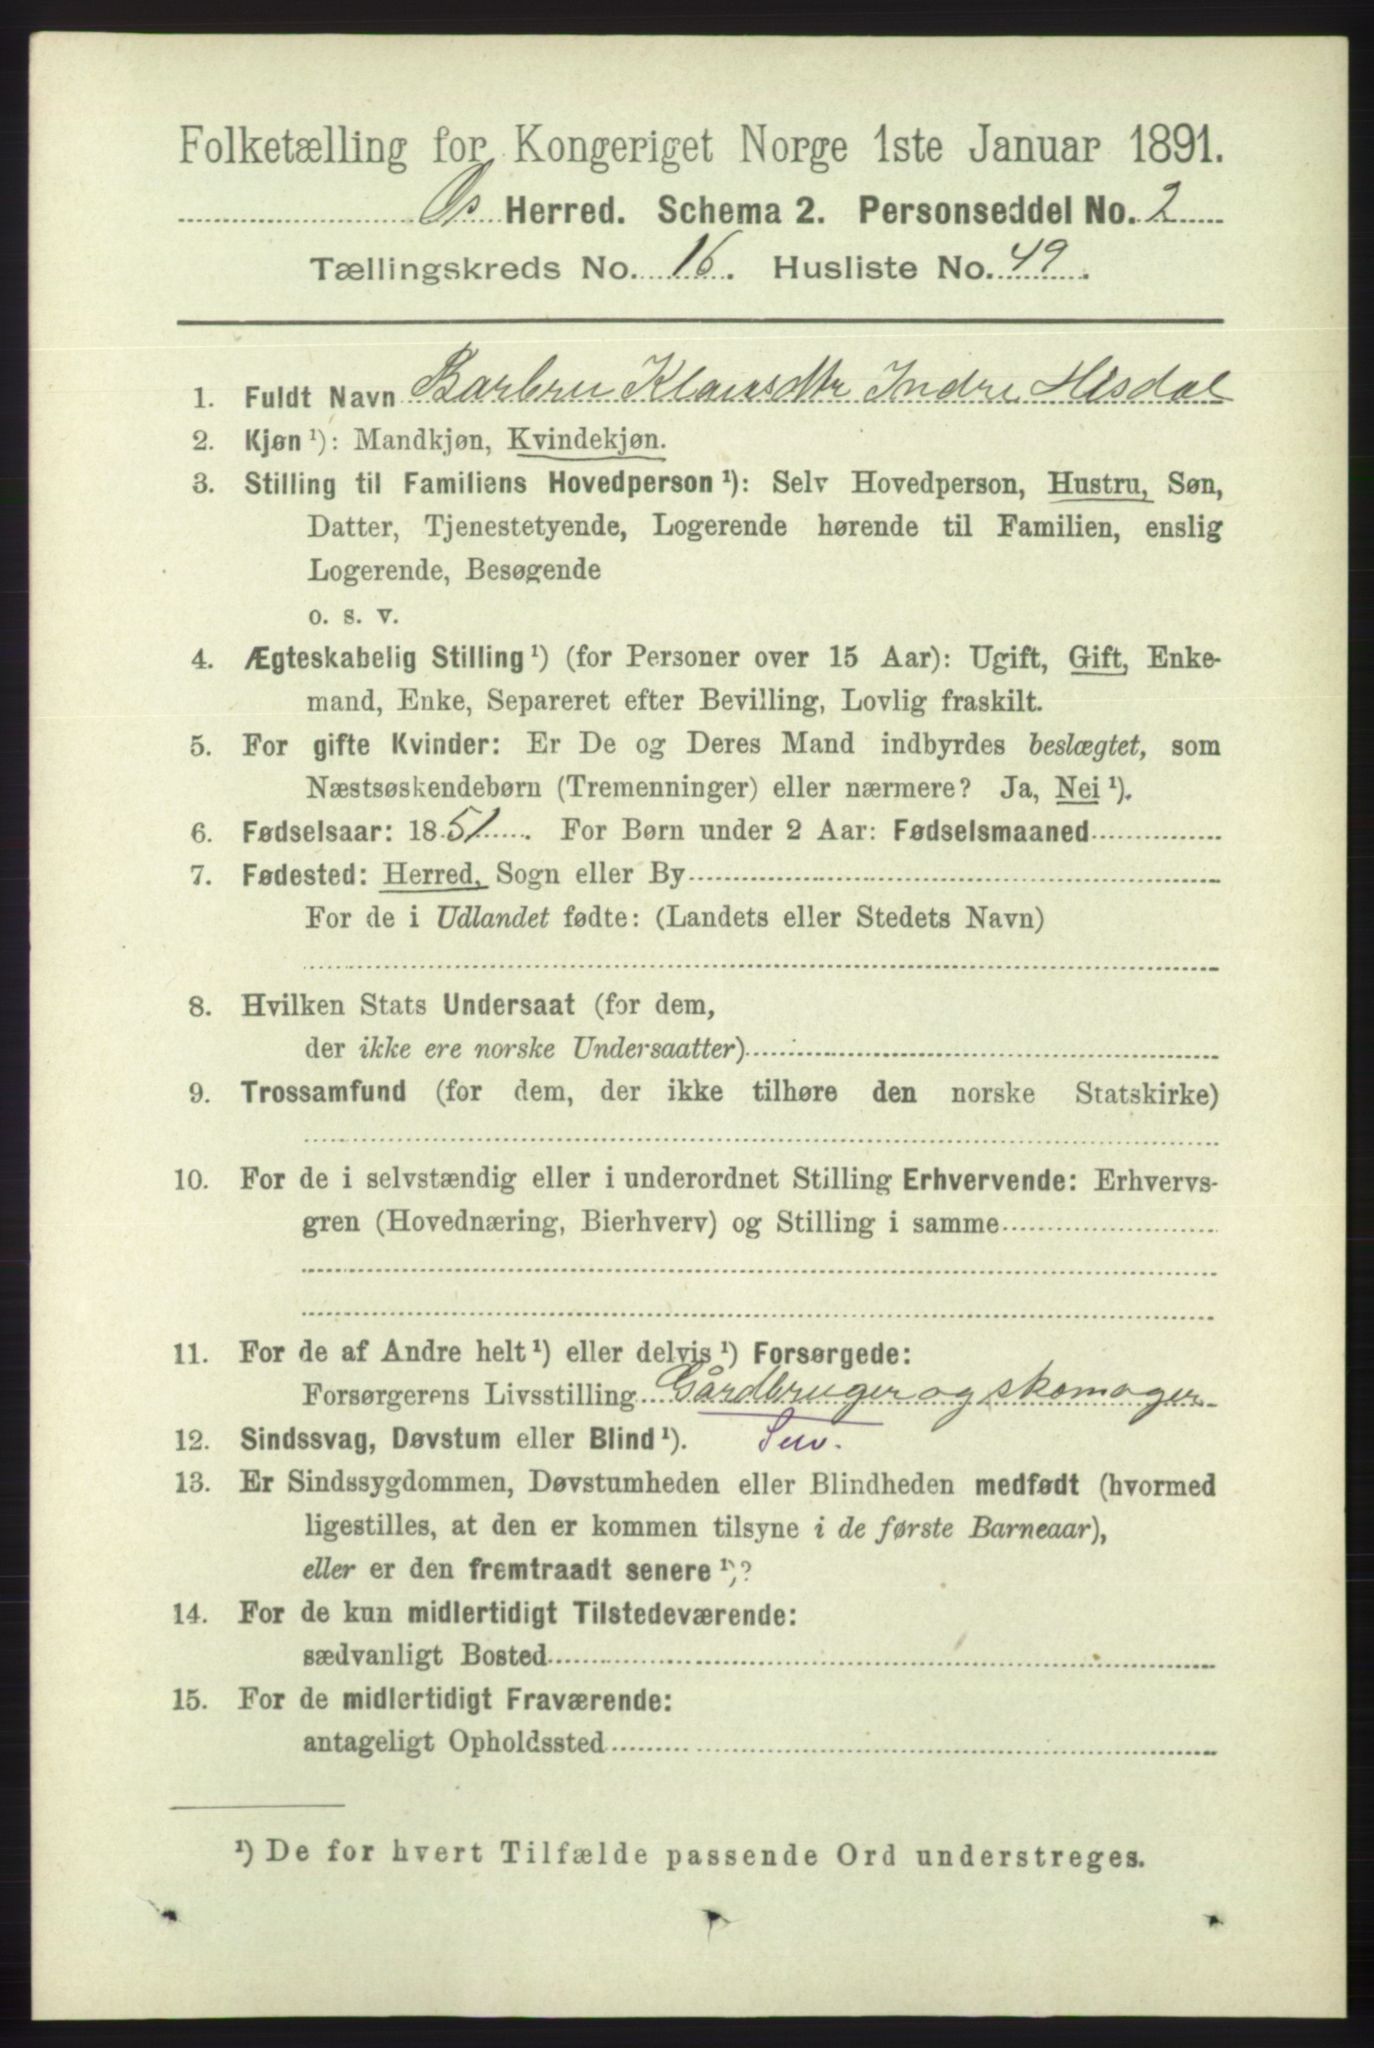 Folketælling for Kongeriget Norge 1ste Januar 1891.
Os Herred. Schema 2. Personseddel No. 2
Tællingskreds No. 16. Husliste No. 49.
1. Fuldt Navn Barbru Klausdtr Indre Hisdal
2. Kjøn ¹): Mandkjøn, Kvindekjøn.
3. Stilling til Familiens Hovedperson ¹): Selv Hovedperson, Hustru, Søn,
Datter, Tjenestetyende, Logerende hørende til Familien, enslig
Logerende, Besøgende
o. s. v.
4. Ægteskabelig Stilling ¹) (for Personer over 15 Aar): Ugift, Gift, Enke-
mand, Enke, Separeret efter Bevilling, Lovlig fraskilt.
5. For gifte Kvinder: Er De og Deres Mand indbyrdes beslægtet, som
Næstsøskendebørn (Tremenninger) eller nærmere? Ja, Nei ¹).
6. Fødselsaar: 1851. For Børn under 2 Aar: Fødselsmaaned
7. Fødested: Herred, Sogn eller By
For de i Udlandet fødte: (Landets eller Stedets Navn)
8. Hvilken Stats Undersaat (for dem,
der ikke ere norske Undersaatter)
9. Trossamfund (for dem, der ikke tilhøre den norske Statskirke)
10. For de i selvstændig eller i underordnet Stilling Erhvervende: Erhvervs-
gren (Hovednæring, Bierhverv) og Stilling i samme
11. For de af Andre helt ¹) eller delvis ¹) Forsørgede:
Forsørgerens Livsstilling Gårdbruger og skomager
12. Sindssvag, Døvstum eller Blind ¹).
13. Er Sindssygdommen, Døvstumheden eller Blindheden medfødt (hvormed
ligestilles, at den er kommen tilsyne i de første Barneaar),
eller er den fremtraadt senere ¹)?
14. For de kun midlertidigt Tilstedeværende:
sædvanligt Bosted
15. For de midlertidigt Fraværende:
antageligt Opholdssted
¹) De for hvert Tilfælde passende Ord understreges.